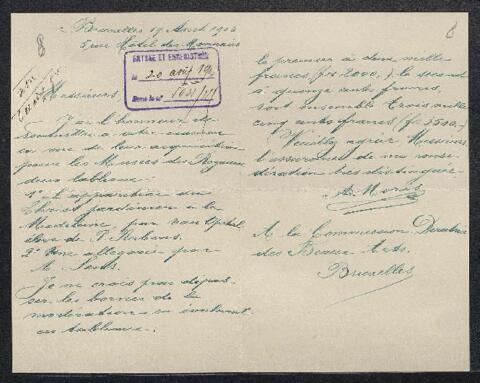 8
Bruxelles 19 Août 190
5 rue Hôtel des Monnaies
ENTRÉE ET ENREGISTRÉE
le 20 août 190
Messieurs
J'ai l'honneur de
soumettre à votre examen
en vue de leur acquisition
pour les Musées du Royaume
deux tableaux.
1° L'apparition du
Christ jardinier à la
Madeleine, par van
élève de P. Rubens.
2° Une allégorie par
A.
Je ne crois pas dépas-
ser les bornes de la
modération en évaluant
ces tableaux.
8
le premier à deux mille
francs (frs 2000,-) le second
à quinze cents francs,
soit ensemble trois mille
cinq cents francs (fr 3500,-)
Veuillez agréer Messieurs
l'assurance de ma consi-
dération très distinguée
A la Commission Directrice
des Beaux-Arts.
Bruxelles